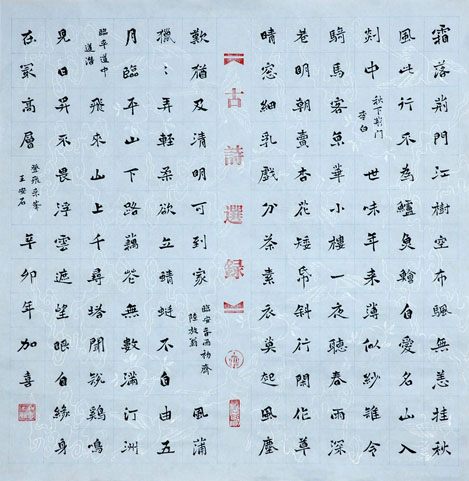 霜落荊門江樹空布颿無恙挂秋
風此行不為鱸魚鱠自愛名山入
剡中
秋下荊門
李白
世味年来薄似紗誰令
騎馬客京華小樓一夜聽春雨深
巷明朝賣杏花矮帋斜行閒作草
晴窓細乳戲分茶素衣莫起風塵
【古詩選録】
歎猶及清明可到家
臨安春雨初霽
陸放翁
風蒲
獵〻弄輕柔欲立蜻蜓不自由五
月臨平山下路藕花無數滿汀洲
臨平道中
道潛
飛來山上千尋塔聞說鷄鳴
見日昇不畏浮雲遮望眼自緣身
在冣高層
登飛來峯
王安石
辛卯年加喜